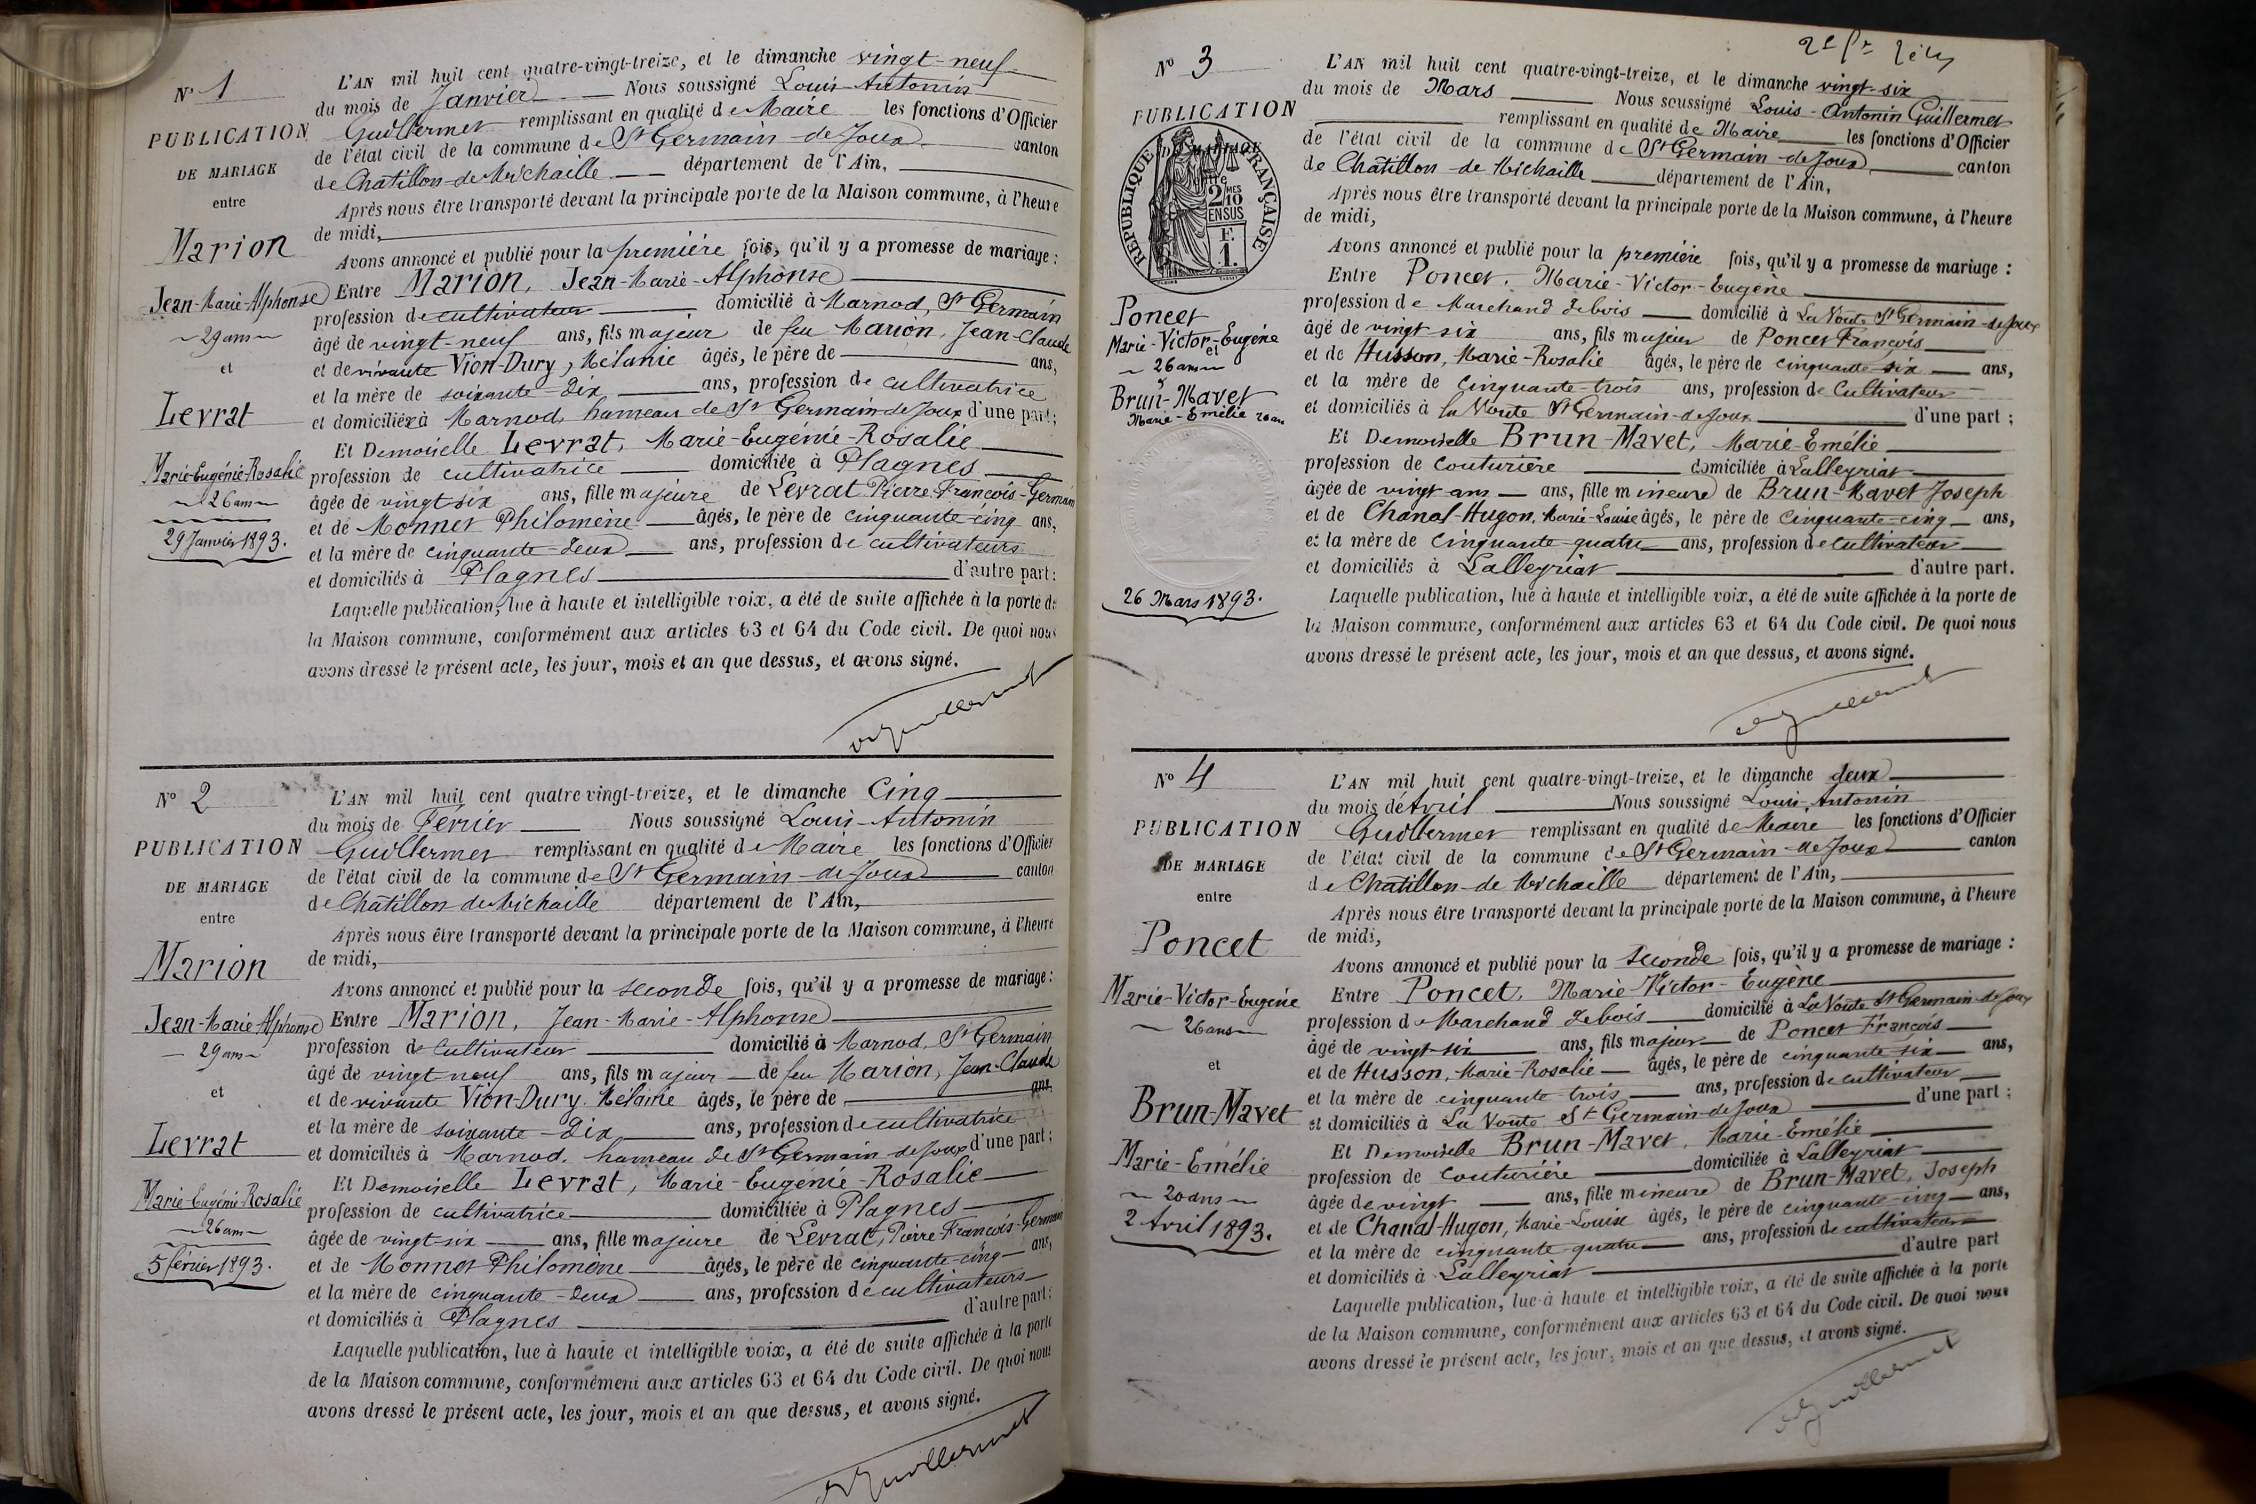 N° 1
PUBLICATION
DE MARIAGE
entre
Marion
Jean-Marie-Alphonse
29 ans
et
Levrat
Marie-Eugénie-Rosalie
26 ans
29 Janvier 1893.
L'AN mil huit cent quatre-vingt-treize, et le dimanche vingt-neuf
du mois de Janvier Nous soussigné Louis-Antonin
Guillermet remplissant en qualité de Maire les fonctions d'Officier
de l'état civil de la commune de St Germain-de-Joux canton
de Chatillon-de-Michaille département de l'Ain,
Après nous être transporté devant la principale porte de la Maison commune, à l'heure
de midi,
Avons annoncé et publié pour la première fois, qu'il y a promesse de mariage :
Entre Marion, Jean-Marie-Alphonse
profession de cultivateur domicilié à Marnod, St Germain
âgé de vingt-neuf ans, fils majeur de feu Marion, Jean-Claude
et de vivante Vion-Dury, Mélanie âgés, le père de ans,
et la mère de soixante-dix ans, profession de cultivatrice
et domiciliée à Marnod, hameau de St Germain-de-Joux d'une part;
Et Demoiselle Levrat, Marie-Eugénie-Rosalie
profession de cultivatrice domiciliée à Plagnes
âgée de vingt-six ans, fille majeure de Levrat Pierre-François-Germain
et de Monnet Philomène âgés, le père de cinquante-cinq ans,
et la mère de cinquante-deux ans, profession de cultivateurs
et domiciliés à Plagnes d'autre part:
Laquelle publication, lue à haute et intelligible voix, a été de suite affichée à la porte de
la Maison commune, conformément aux articles 63 et 64 du Code civil. De quoi nous
avons dressé le présent acte, les jour, mois et an que dessus, et avons signé.
Guillermet
N° 2
PUBLICATION
DE MARIAGE
entre
Marion
Jean-Marie-Alphonse
29 ans
et
Levrat
Marie-Eugénie-Rosalie
26 ans
5 février 1893.
L'AN mil huit cent quatre-vingt-treize, et le dimanche Cinq
du mois de Février Nous soussigné Louis-Antonin
Guillermet remplissant en qualité de Maire les fonctions d'Officier
de l'état civil de la commune de St Germain-de-Joux canton
de Chatillon-de-Michaille département de l'Ain,
Après nous être transporté devant la principale porte de la Maison commune, à l'heure
de midi,
Avons annoncé et publié pour la seconde fois, qu'il y a promesse de mariage :
Entre Marion, Jean-Marie-Alphonse
profession de cultivateur domicilié à Marnod, St Germain
âgé de vingt neuf ans, fils majeur de feu Marion, Jean-Claude
et de vivante Vion-Dury. Mélanie âgés, le père de ans,
et la mère de soixante-dix ans, profession de cultivatrice
et domiciliés à Marnod, hameau de St Germain-de-Joux d'une part;
Et Demoiselle Levrat, Marie-Eugénie-Rosalie
profession de cultivatrice domiciliée à Plagnes
âgée de vingt-six ans, fille majeure de Levrat, Pierre-François-Germain
et de Monnet Philomène âgés, le père de cinquante-cinq ans,
et la mère de cinquante-deux ans, profession de cultivateurs
et domiciliés à Plagnes d'autre part;
Laquelle publication, lue à haute et intelligible voix, a été de suite affichée à la porte
de la Maison commune, conformément aux articles 63 et 64 du Code civil. De quoi nous
avons dressé le présent acte, les jour, mois et an que dessus, et avons signé.
Guillermet
N° 3
PUBLICATION
DE MARIAGE
entre
RÉPUBLIQUE FRANÇAISE
2 MES
10
EN SUS
F.
1.
Poncet
Marie-Victor-Eugène
et
26 ans
Brun-Mavet
Marie-Emélie 20 ans
26 Mars 1893.
L'AN mil huit cent quatre-vingt-treize, et le dimanche vingt-six
du mois de Mars Nous soussigné Louis-Antonin Guillermet
remplissant en qualité de Maire les fonctions d'Officier
de l'état civil de la commune de St Germain-de-Joux canton
de Châtillon-de-Michaille département de l'Ain,
Après nous être transporté devant la principale porte de la Maison commune, à l'heure
de midi,
Avons annoncé et publié pour la première fois, qu'il y a promesse de mariage :
Entre Poncet, Marie-Victor-Eugène
profession de Marchand de bois domicilié à La Voute St Germain-de-Joux
âgé de vingt-six ans, fils majeur de Poncet François
et de Husson, Marie-Rosalie âgés, le père de cinquante-six ans,
et la mère de cinquante-trois ans, profession de Cultivateur
et domiciliés à la Voute St Germain-de-Joux d'une part ;
Et Demoiselle Brun-Mavet, Marie-Emélie
profession de couturière domiciliée à Lalleyriat
âgée de vingt ans ans, fille mineure de Brun-Mavet Joseph
et de Chanal-Hugon, Marie-Louise âgés, le père de cinquante-cinq ans,
et la mère de cinquante-quatre ans, profession de cultivateur
et domiciliés à Lalleyriat d'autre part.
Laquelle publication, lue à haute et intelligible voix, a été de suite affichée à la porte de
la Maison commune, conformément aux articles 63 et 64 du Code civil. De quoi nous
avons dressé le présent acte, les jour, mois et an que dessus, et avons signé.
Guillermet
N° 4
PUBLICATION
DE MARIAGE
entre
Poncet
Marie-Victor-Eugène
26 ans
et
Brun-Mavet
Marie-Emélie
20 ans
2 Avril 1893.
L'AN mil huit cent quatre-vingt-treize, et le dimanche deux
du mois de Avril Nous soussigné Louis, Antonin
Guillermet remplissant en qualité de Maire les fonctions d'Officier
de l'état civil de la commune de St Germain-de-Joux canton
de Chatillon-de-Michaille département de l'Ain,
Après nous être transporté devant la principale porte de la Maison commune, à l'heure
de midi,
Avons annoncé et publié pour la seconde fois, qu'il y a promesse de mariage :
Entre Poncet, Marie-Victor-Eugène
profession de Marchand de bois domicilié à La Voute St Germain-de-Joux
âgé de vingt-six ans, fils majeur de Poncet François
et de Husson, Marie-Rosalie âgés, le père de cinquante-six ans,
et la mère de cinquante-trois ans, profession de cultivateur
et domiciliés à La Voute St Germain-de-Joux d'une part ;
Et Demoiselle Brun-Mavet, Marie-Emélie
profession de couturière domiciliée à Lalleyriat
âgée de vingt ans, fille mineure de Brun-Mavet, Joseph
et de Chanal-Hugon, Marie-Louise âgés, le père de cinquante-cinq ans,
et la mère de cinquante-quatre ans, profession de cultivateurs
et domiciliés à Lalleyriat d'autre part
Laquelle publication, lue à haute et intelligible voix, a été de suite affichée à la porte
de la Maison commune, conformément aux articles 63 et 64 du Code civil. De quoi nous
avons dressé le présent acte, les jour, mois et an que dessus, et avons signé.
Guillermet